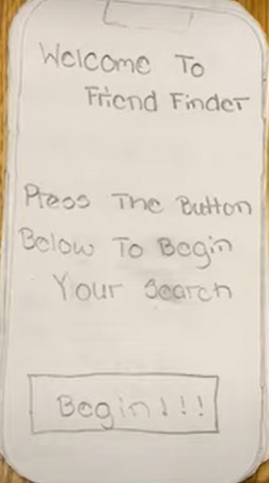 Welcome To
Friend Finder
Press The Button
Below To Begin
Your Search
Begin!!!